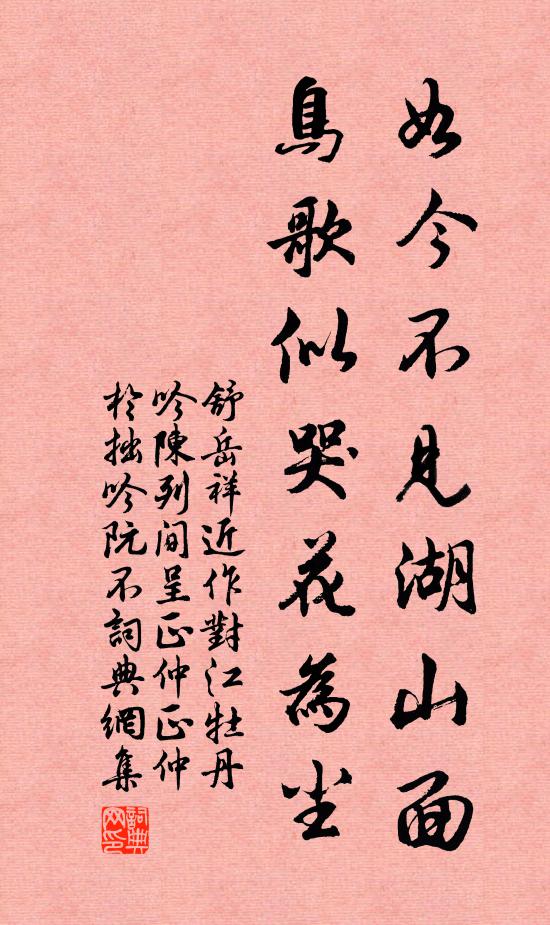 如今不見湖山面
鳥歌似哭花為尘
舒岳祥近作對江牡丹
吟陳列间呈正仲正仲
於拙吟阮不詞典網集
詞典网印